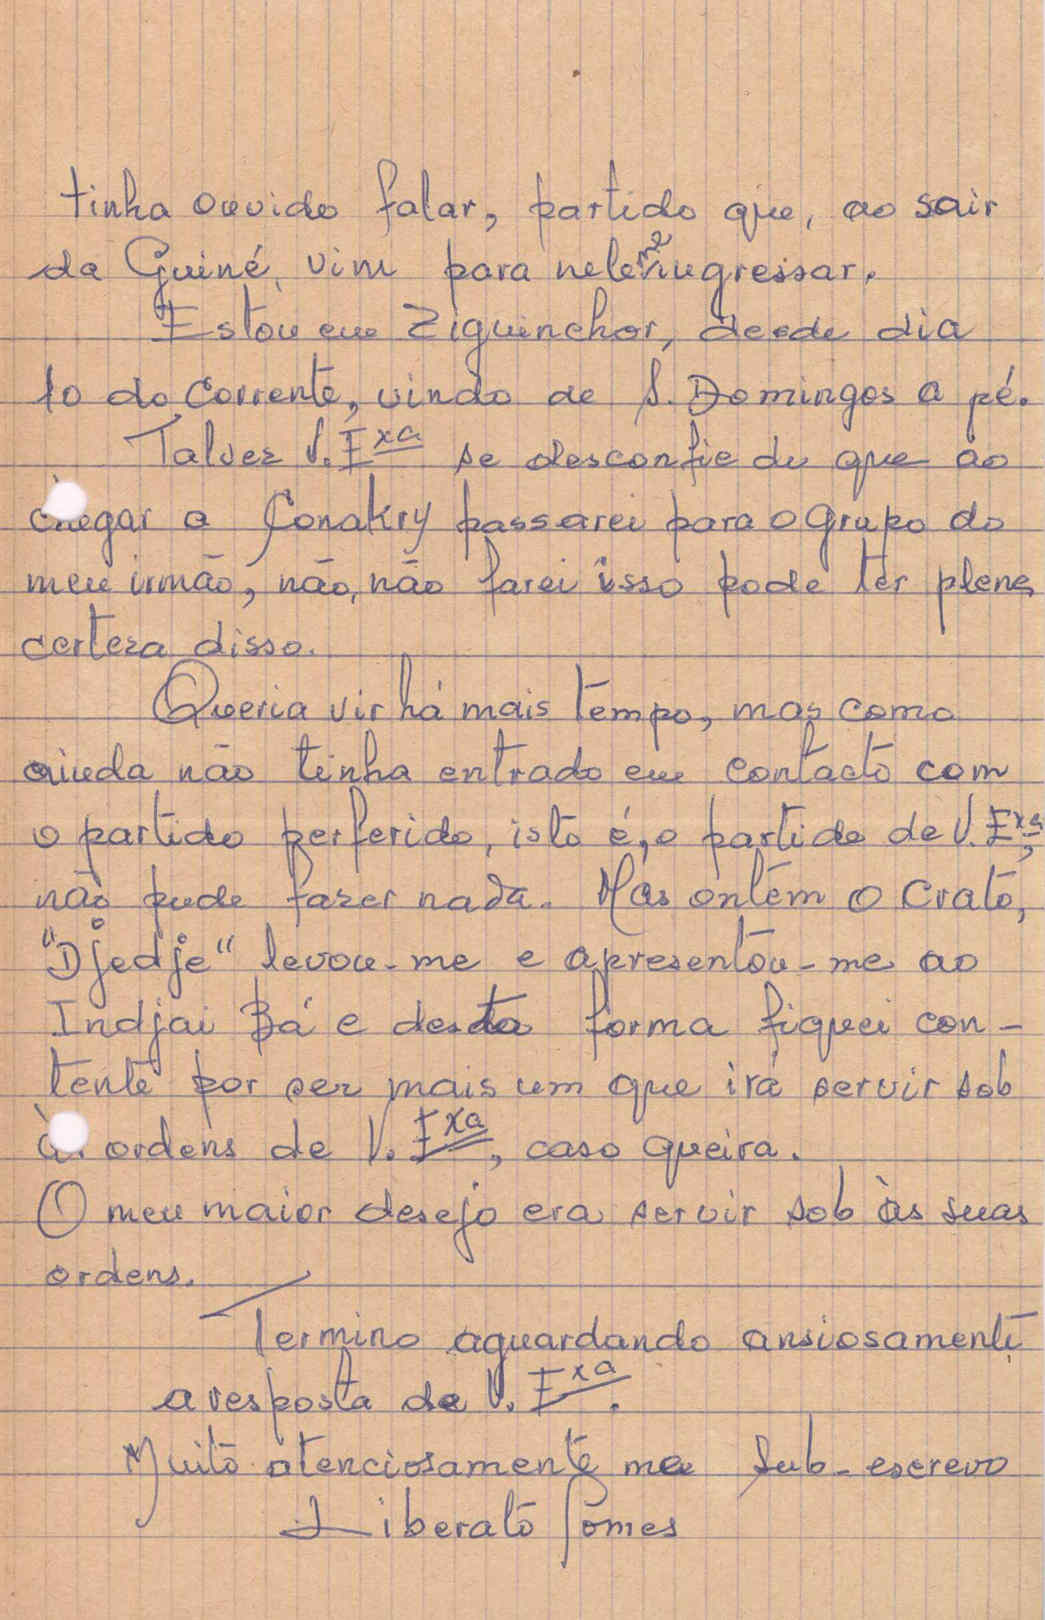 tinha ouvido falar, partido que, ao sair
da Guiné, vim para nele me ingressar.
Estou em Ziguinchor, desde dia
10 do corrente, vindo de S. Domingos a pé.
Talvez V. Exa se desconfie de que ao
chegar a Conakry passarei para o grupo do
meu irmão, não, não farei isso pode ter plena
certeza disso.
Queria vir há mais tempo, mas como
ainda não tinha entrado em contacto com
o partido perferido, isto é, o partido de V. Exa,
não pude fazer nada. Mas ontem o Crato,
"Djedje" levou-me e apresentou-me ao
Indjai Bá e desta forma fiquei con-
tente por ser mais um que irá servir sob
às ordens de V. Exa, caso queira.
O meu maior desejo era servir sob às suas
ordens.
Termino aguardando ansiosamente
a resposta de V. Exa.
Muito atenciosamente me sub-escrevo
Liberato Gomes